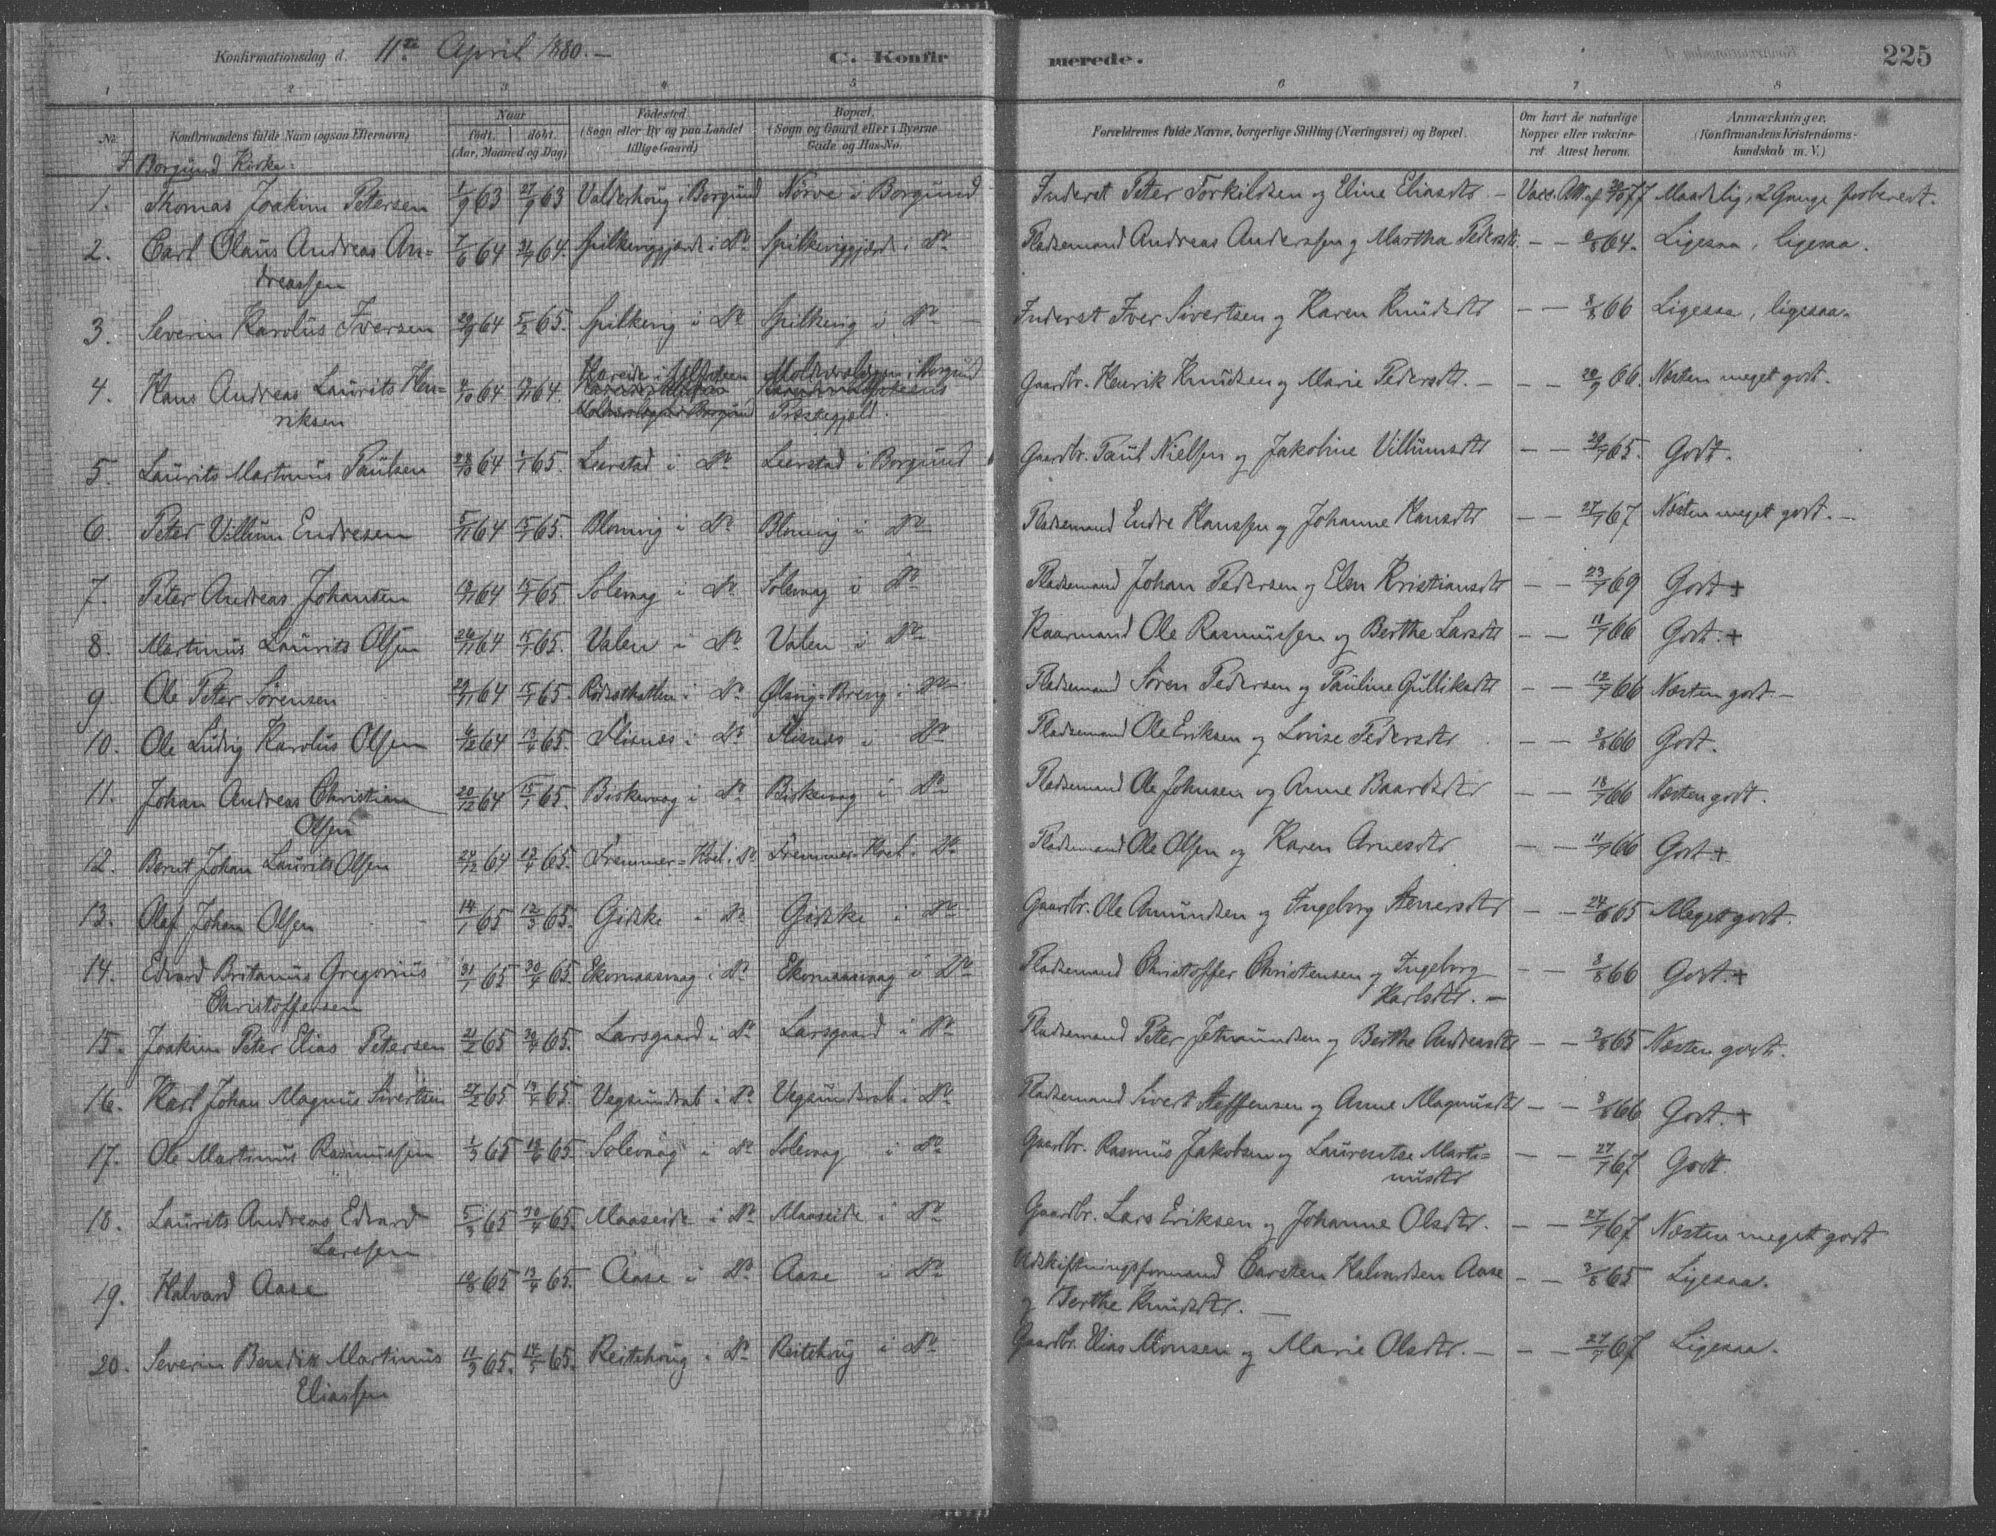 Konfirmationsdag d. 11te April 1880. — C. Konfirmerede. 225
1 2 3 4 5 6 7 8
No. Konfirmandens fulde Navn (ogsaa Efternavn) Naar født. døbt. (Aar, Maaned og Dag) Fødested (Sogn eller By og paa Landet tillige Gaard) Bopæl. (Sogn og Gaard eller i Byerne Gade og Hus-No. Forældrenes fulde Navne, borgerlige Stilling (Næringsvei) og Bopæl. Om havt de naturlige Kopper eller vaccineret Attest herom. Anmærkninger. (Konfirmandens Kristendomskundskab m. V.)
I Borgund Kirke:
1. Thomas Joakim Petersen 1/9 63 27/9 63 Valderhoug i Borgund Nørve i Borgund Inderst Peter Torkildsen og Eline Eliasdtr — Vacc. Att. af 77 Maadelig, 2 Gange forberedt.
2. Carl Olaus Andreas An= 7/6 64 31/7 64. Spilkeviggjærde i Do Spilkeviggjærde i Do Pladsemand Andreas Anderssen og Martha Pedersdtr. — — 6/8 64. Ligesaa, ligesaa.
dreassen
3. Severin Karolus Iversen 29/9 64 5/2 65. Spilkevig i Do Spilkevig i Do — Inderst Iver Sivertsen og Karen Knudsdtr — — 8/8 66 Ligesaa, ligesaa.
4. Hans Andreas Laurits Hen= 64 64. Hareide i Ulfsteen Molværsløgen i Borgund Gaardbr. Henrik Knudsen og Marie Pedersdtr. — — 20/9 66. Næsten meget godt.
riksen Præstegjæld.
5. Laurits Martinus Paulsen 23/10 64 1/1 65. Leerstad i Do Leerstad i Borgund Gaardbr. Paul Nielsen og Jakobine Villumsdtr — — 29/7 65. Godt.
6. Peter Villum Endresen 5/11 64 15/1 65. Blomvig i Do Blomvig i Do Pladsemand Endre Hanssen og Johanne Hansdtr — — 27/7 67 Næsten meget godt. —
7. Peter Andreas Johansen 64 15/1 65. Solevaag i Do Solevaag i Do Pladsemand Johan Pedersen og Elen Kristiansdtr — — 23/7 69 Godt +
8. Martinus Laurits Olsen 26/11 64 15/1 65. Valen i Do Valen i Do Kaarmand Ole Rasmussen og Berthe Larsdtr — — 11/7 66 Godt. +
9 Ole Peter Sørensen 29/11 64 15/1 65. i Do i Do Pladsemand Søren Pedersen og Pauline Gulliksdtr — — 12/7 66 Næsten godt —
10. Ole Ludvig Karolus Olsen 6/12 64 13/4 65. Flisnæs i Do Flisnæs i Do Pladsemand Ole Eriksen og Lovise Pedersdtr — — 8/8 66 Godt.
11. Johan Andreas Christian 20/12 64 15/1 65. Biskevaag i Do Biskevaag i Do Pladsemand Ole Johnsen og Anne Baardsdtr — — 18/7 66 Næsten godt.
Olsen
12. Bernt Johan Laurits Olsen 27/12 64 13/4 65. Fremmer=Hoel i Do Fremmer=Hoel i Do Pladsemand Ole Olsen og Karen Arnesdtr — — 11/7 66 Godt +
13. Olaf Johan Olsen 14/1 65 12/3 65. Gidske i Do Gidske i Do Gaardbr. Ole Amundsen og Ingeborg Stenersdtr — — 24/8 65 Meget godt.
14. Edvard Britanus Gregorius 31/1 65 30/4 65. Ekornaasvaag i Do Ekornaasvaag i Do Pladsemand Christoffer Christensen og Ingeborg — — 8/8 66 Godt. +
Christoffersen Karlsdtr. —
15. Joakim Peter Elias Petersen 21/2 65 30/4 65. Larsgaard i Do Larsgaard i Do Pladsemand Peter Jetmundsen og Berthe Andreasdtr — — 3/8 65 Næsten godt.
16. Karl Johan Magnus Sivertsen 27/2 65 13/4 65. Vegsundsæt i Do Vegsundsæt i Do Pladsemand Sivert Steffensen og Anne Magnusdtr — — 8/8 66 Godt. +
17. Ole Martinus Rasmussen 1/3 65 65. Solevaag i Do Solevaag i Do Gaardbr. Rasmus Jakobsen og Laurentse Marti= — — 27/7 67 Godt
nusdtr
18. Laurits Andreas Edvard 5/3 65 30/4 65. Maaseide i Do Maaseide i Do Gaardbr. Lars Eriksen og Johanne Olsdtr. — — 27/7 67 Næsten meget godt
Larssen
19. Halvard Aase 65 13/4 65. Aase i Do Aase i Do Udskiftningsformand Carsten Halvardsen Aase — — 3/8 65 Ligesaa.
og Berthe Knudsdtr. —
20. Severin Bendik Martinus 11/3 65. 14/5 65. Reitehoug i Do Reitehoug i Do Gaardbr. Elias Monsen og Marie Olsdtr. — — — 27/7 67 Ligesaa.
Eliassen